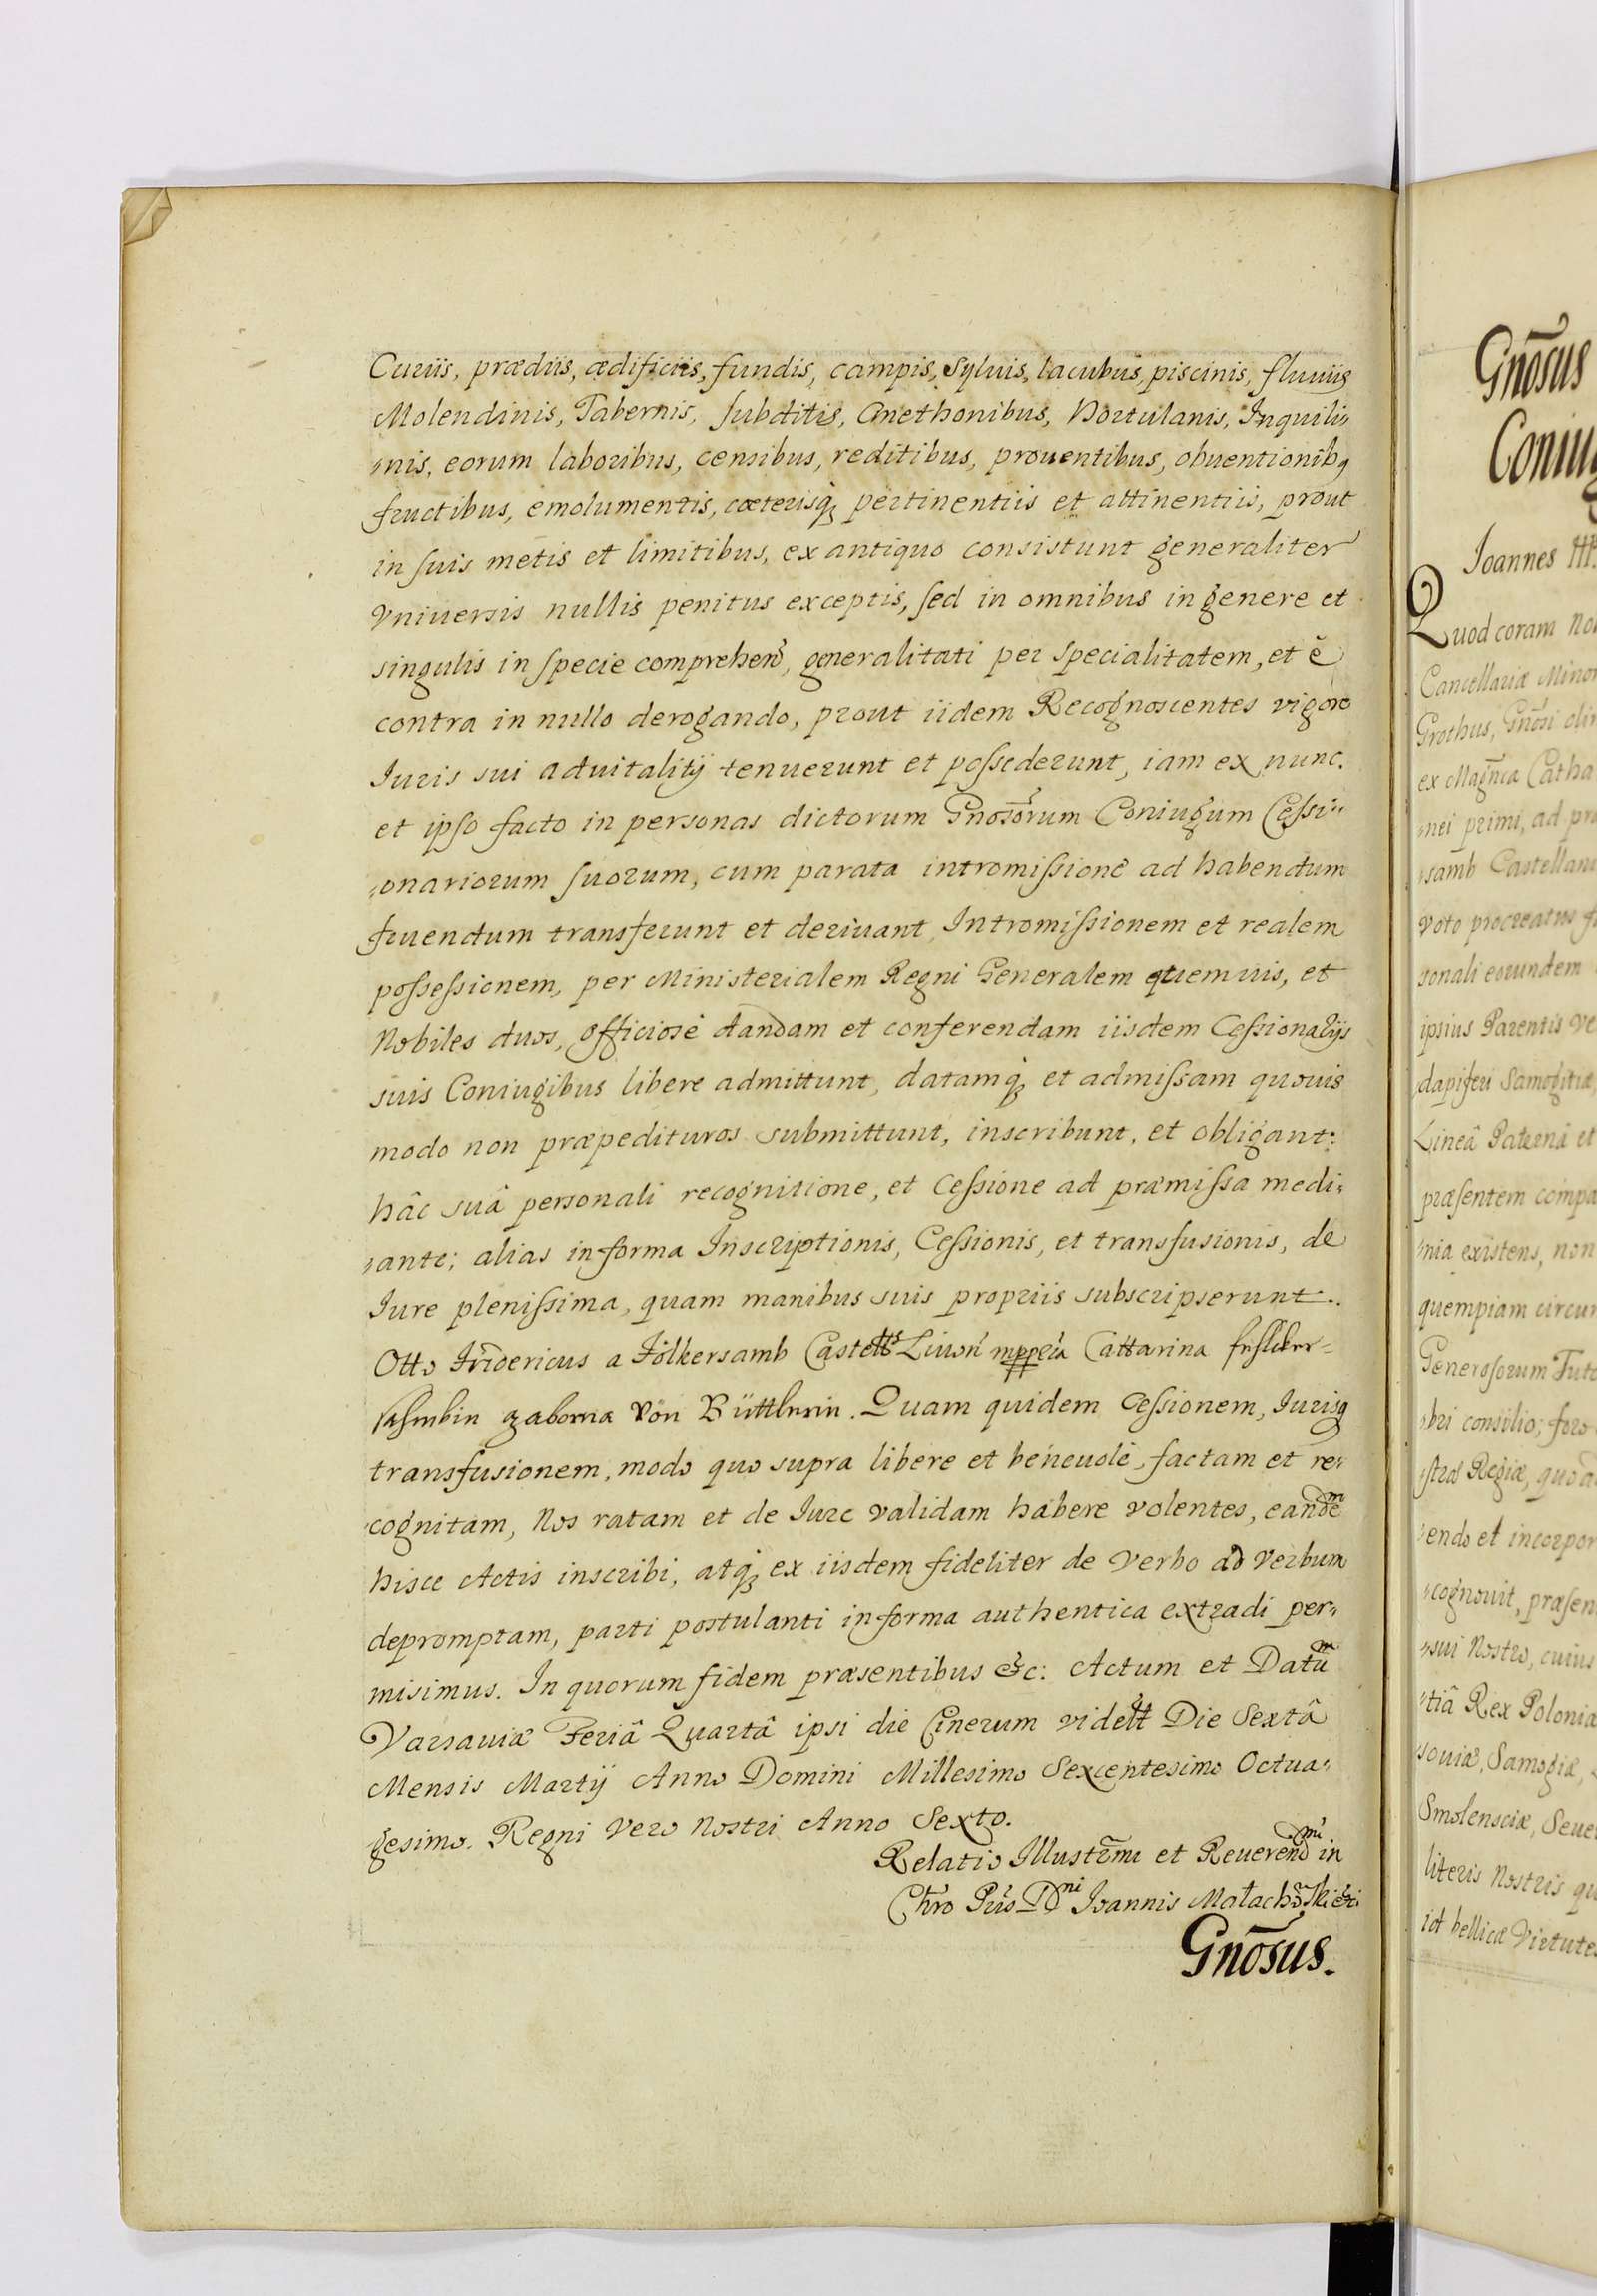 Curiis, prædiis, ædificiis, fundis, campis, Syluis, lacubus, piscinis, fluuiis
Molendinis, Tabernis, subditis, Cmethonibus, Hortulanis, Inquili„
„nis, eorum laboribus, censibus, reditibus, prouentibus, obuentionibq
fructibus, emolumentis, cæterisq́ pertinentiis et attinentiis, prout
in suis metis et limitibus, ex antiquo consistunt generaliter
Vniuersis nullis penitus exceptis, sed in omnibus in genere et
singulis in specie comprehen̄, generalitati per specialitatem, et è
contra in nullo derogando, prout iidem Recognoscentes vigore
Iuris sui aduitalitij tenuerunt et possederunt, iam ex nunc.
et ipso facto in personas dictorum Gnosōrum Coniugum Cessi„
„onariorum suorum, cum parata intromissione ad habendum
fruendum transferunt et deriuant, Intromissionem et realem
possessionem, per Ministerialem Regni Generalem quemuis, et
Nobiles duos, officiosè dandam et conferendam iisdem Cessionarijs
suis Coniugibus libere admittunt, datamq́ et admissam quouis
modo non præpedituros submittunt, inscribunt, et obligant:
hâc suâ personali recognitione, et Cessione ad præmissa medi„
„ante; alias in forma Inscriptionis, Cessionis, et transfusionis, de
Iure plenissima, quam manibus suis propriis subscripserunt..
Otto Fridericus a Fölkersamb Castells Liuon̄ mppria Cattarina
gaborna Von Büttlerin. Quam quidem Cessionem, Iurisq
transfusionem, modo quo supra libere et beneuolè, factam et re„
„cognitam, Nos ratam et de Iure validam habere volentes, eandēm
hisce Actis inscribi, atq́ ex iisdem fideliter de verbo ad verbum
depromptam, parti postulanti in forma authentica extradi per„
misimus. In quorum fidem præsentibus &c: Actum et Datūm
Varsauiæ Feriâ Quartâ ipsi die Cinerum videlt Die Sextâ
Mensis Martij Anno Domini Millesimo Sexcentesimo Octua„
gesimo. Regni Vero Nostri Anno Sexto.
Relatio Illustrm̄i et Reuerendmi in
Chro Pris Dni Ioannis Małachowski etc
Gnōsus.
Gnōsus
Coniug
Joannes III.
Quod coram No
Cancellariæ Minor
Grothus, Gnōsi olim
ex Magn̄ca Catha
„nei primi, ad pra
„samb Castellan
voto procreatus f
sonali eorundem
ipsius Parentis Ve
dapiferi Samogitiæ
Lineâ Paternâ et
præsentem compa
„nia existens, non
quempiam circum
Generosorum Tuto
„bri consilio; foro
„stræ Regiæ, quoad
„endo et incorpor
„cognouit, præsen
„sui Nostro, cuius
„tiâ Rex Poloniæ
„souiæ, Samogiæ,
Smolensciæ, Seue
literis Nostris qu
id bellicæ Virtutes